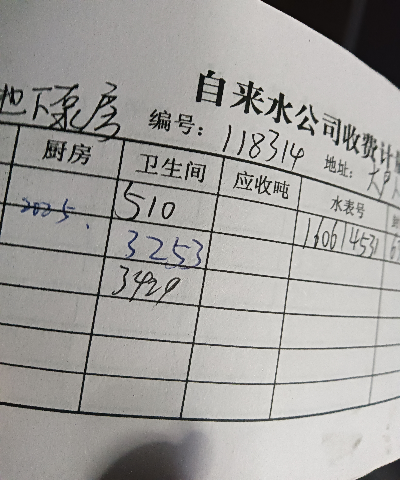 自来水公司收费计
地下泵房 编号: 118314 地址:
厨房 卫生间 应收吨 水表号
510 16061453
2025. 3253
3429